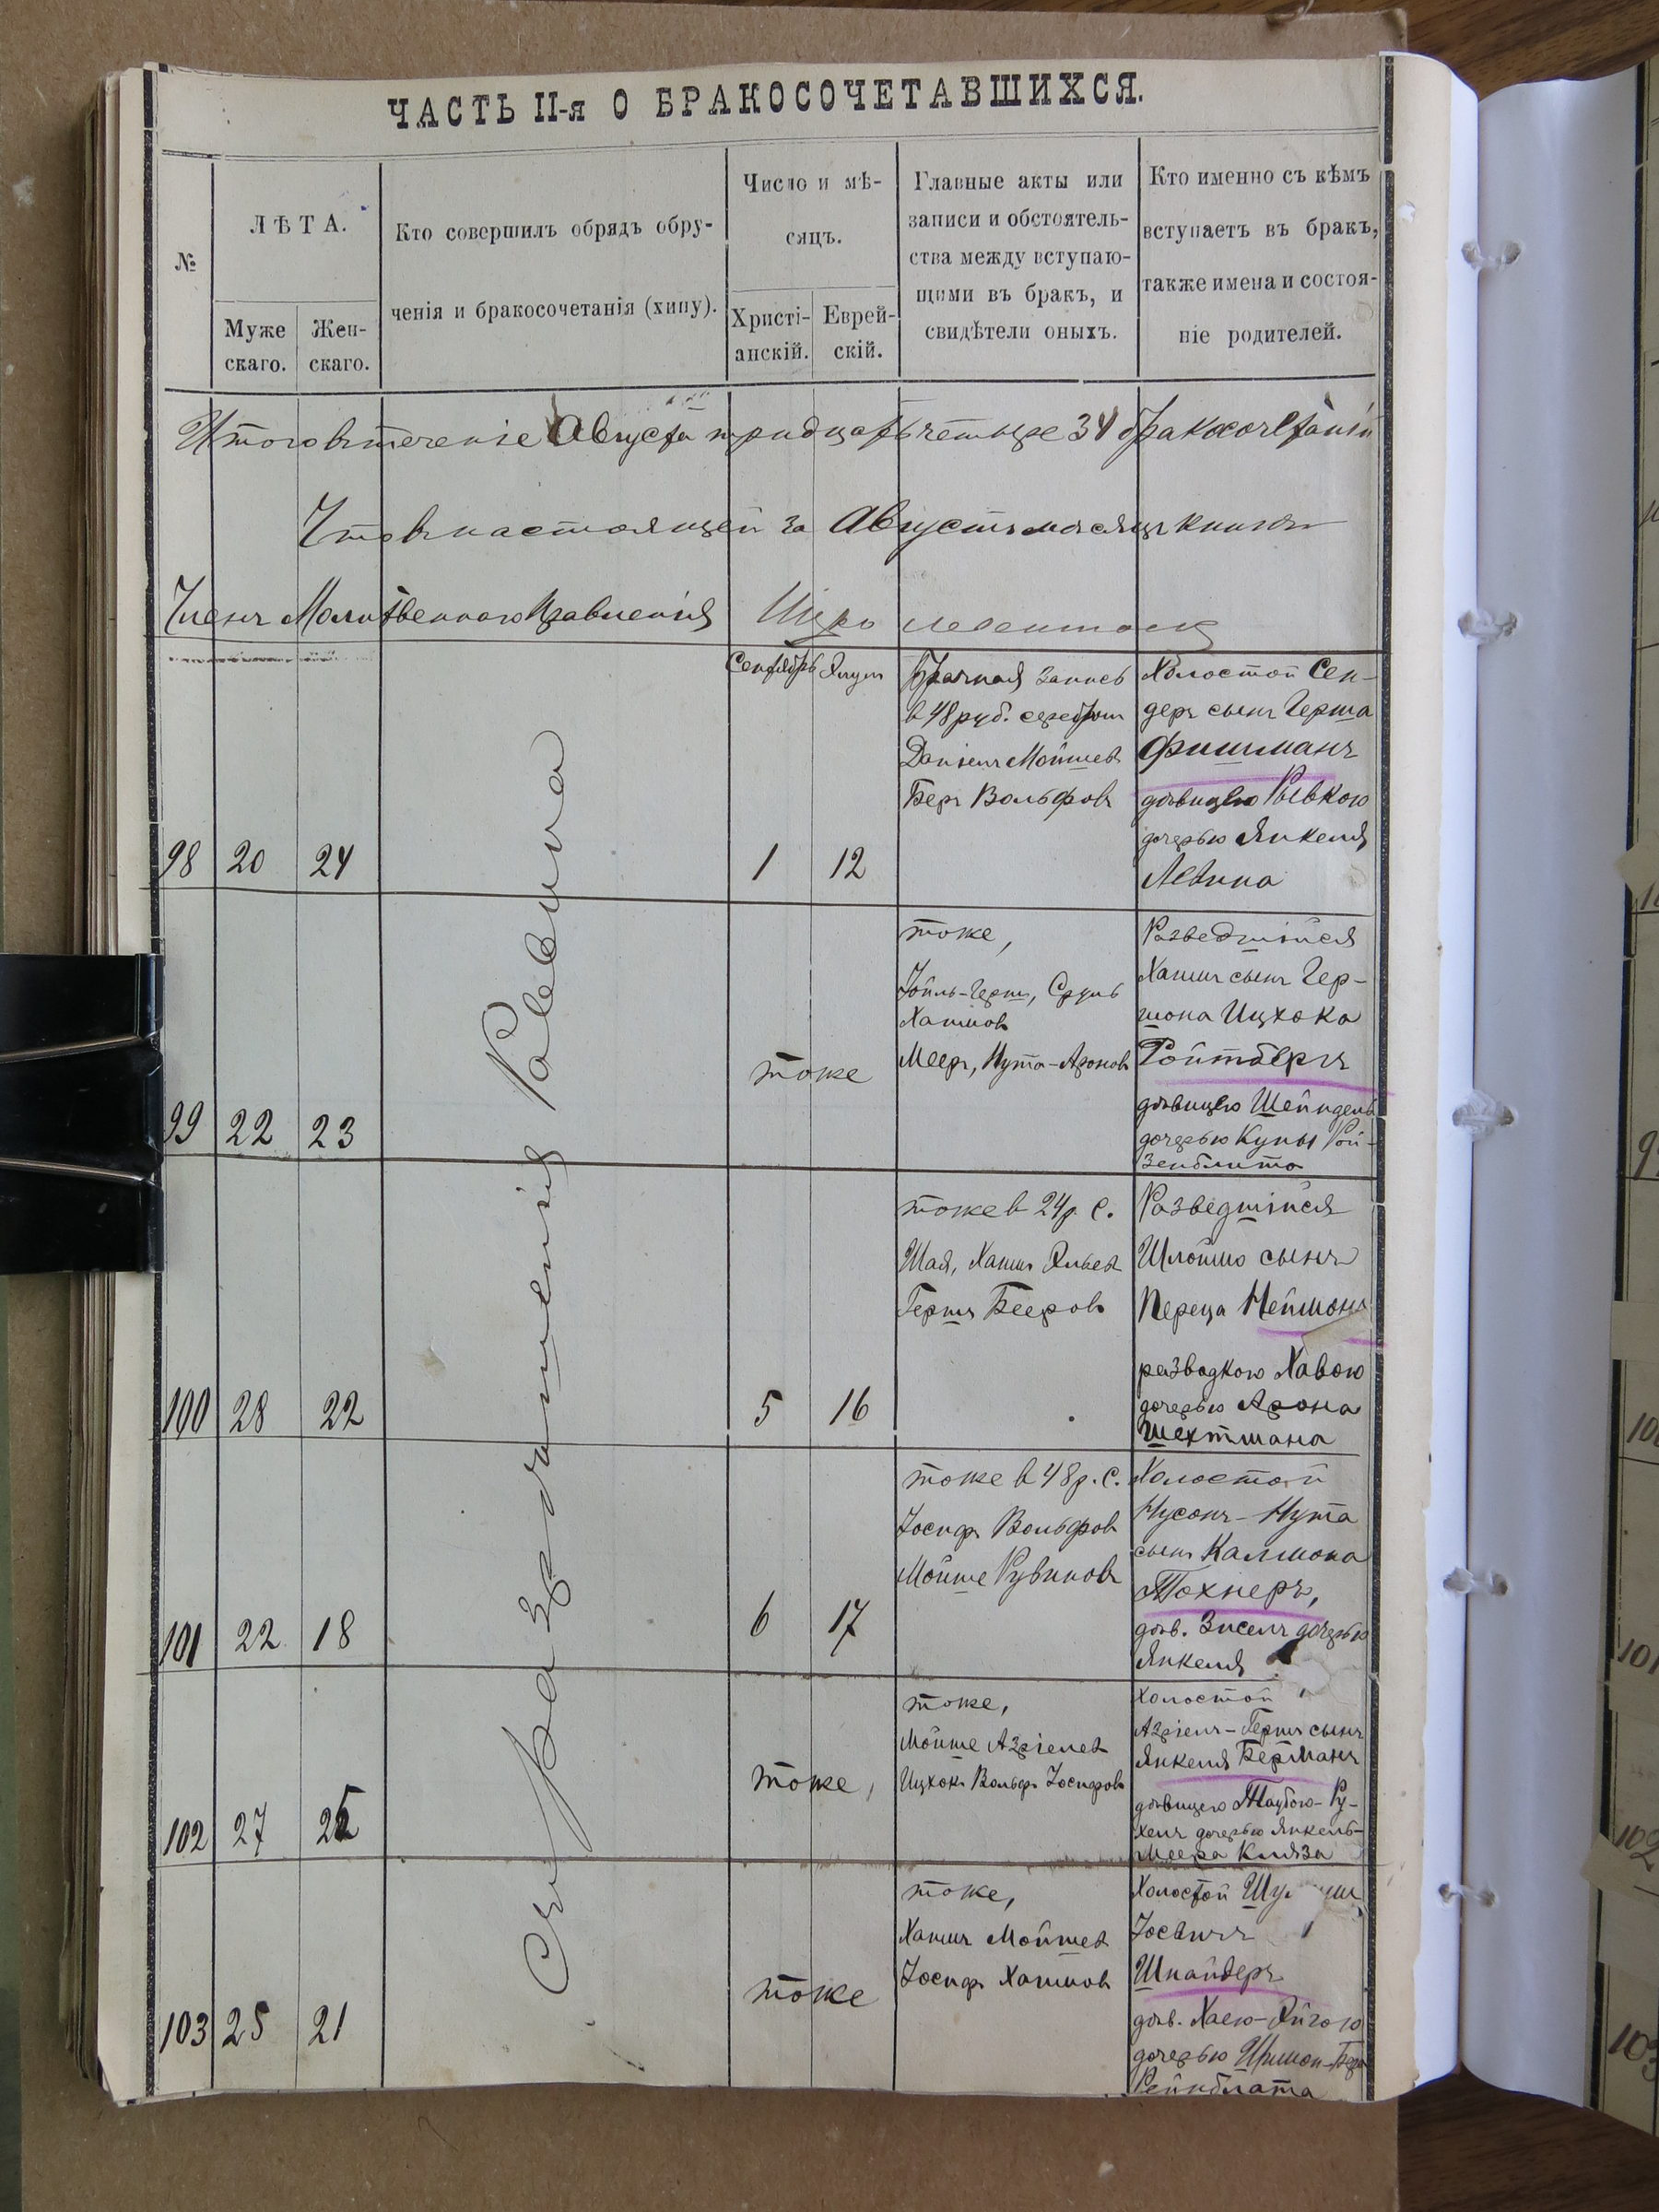 ЧАСТЬ II-я О БРАКОСОЧЕТАВШИХСЯ.
№
ЛѢТА.
Муже
скаго.
Жен-
скаго.
Кто совершилъ обрядъ обру-
ченія и бракосочетанія (хипу).
Число и мѣ-
сяцъ.
Христі-
анскій.
Еврей-
скій.
Главные акты или
записи и обстоятель-
ства между вступаю-
щими въ бракъ, и
свидѣтели оныхъ.
Кто именно съ кѣмъ
вступаетъ въ бракъ,
также имена и состоя-
ніе родителей.
Итого втеченіе Августа тридцать четыре 34 бракосочетаній
Что въ настоящей за Августъ мѣсяцъ книгѣ
Членъ Молитвеннаго Правленія
Раввинъ
98 20 24
Сентябрь
1 12
Брачная запись
в 48 руб. серебром
Даніелъ Мойшев
Беръ Вольфовъ
Холостой Сен-
деръ сынъ Герша
Фишманъ
дѣвицею Ривкою
дочерью Янкеля
Левина
99 22 23
тоже
тоже,
Іойль-Герш, Сруль
Хаимов
Мееръ, Нута-Ароновъ
Разведшійся
Хаимъ сынъ Гер-
шона Ицхока
Ройтбергъ
дѣвицею Шейндель
дочерью Куны Рой-
зенблита
100 28 22
5 16
тоже в 24 р. с.
Шая, Хаимъ Эльев
Гершъ Бееровъ
Разведшійся
Шлоймо сынъ
Переца Неймонъ
разводкою Хавою
дочерью Арона
Шехтмана
101 22 18
6 17
тоже в 48 р. с.
Іосифъ Вольфов
Мойше Рувиновъ
Холостой
Нусонъ-Нута
сынъ Калмона
Тохнеръ,
дѣв. Зиселъ дочерью
Янкеля
102 27 25
тоже,
тоже,
Мойше Азріелев
Ицхокъ Вольфъ Іосифовъ
Холостой
Азріелъ-Гершъ сынъ
Янкеля Берманъ
дѣвицею Таубою-Ру-
хелъ дочерью Янкель-
Меера Князя
103 25 21
тоже
тоже,
Хаимъ Мойшев
Іосифъ Хаимов
Холостой
Шнайдеръ
дѣв. Хаею-Эйгою
дочерью Шимон-Бера
Рейнблата